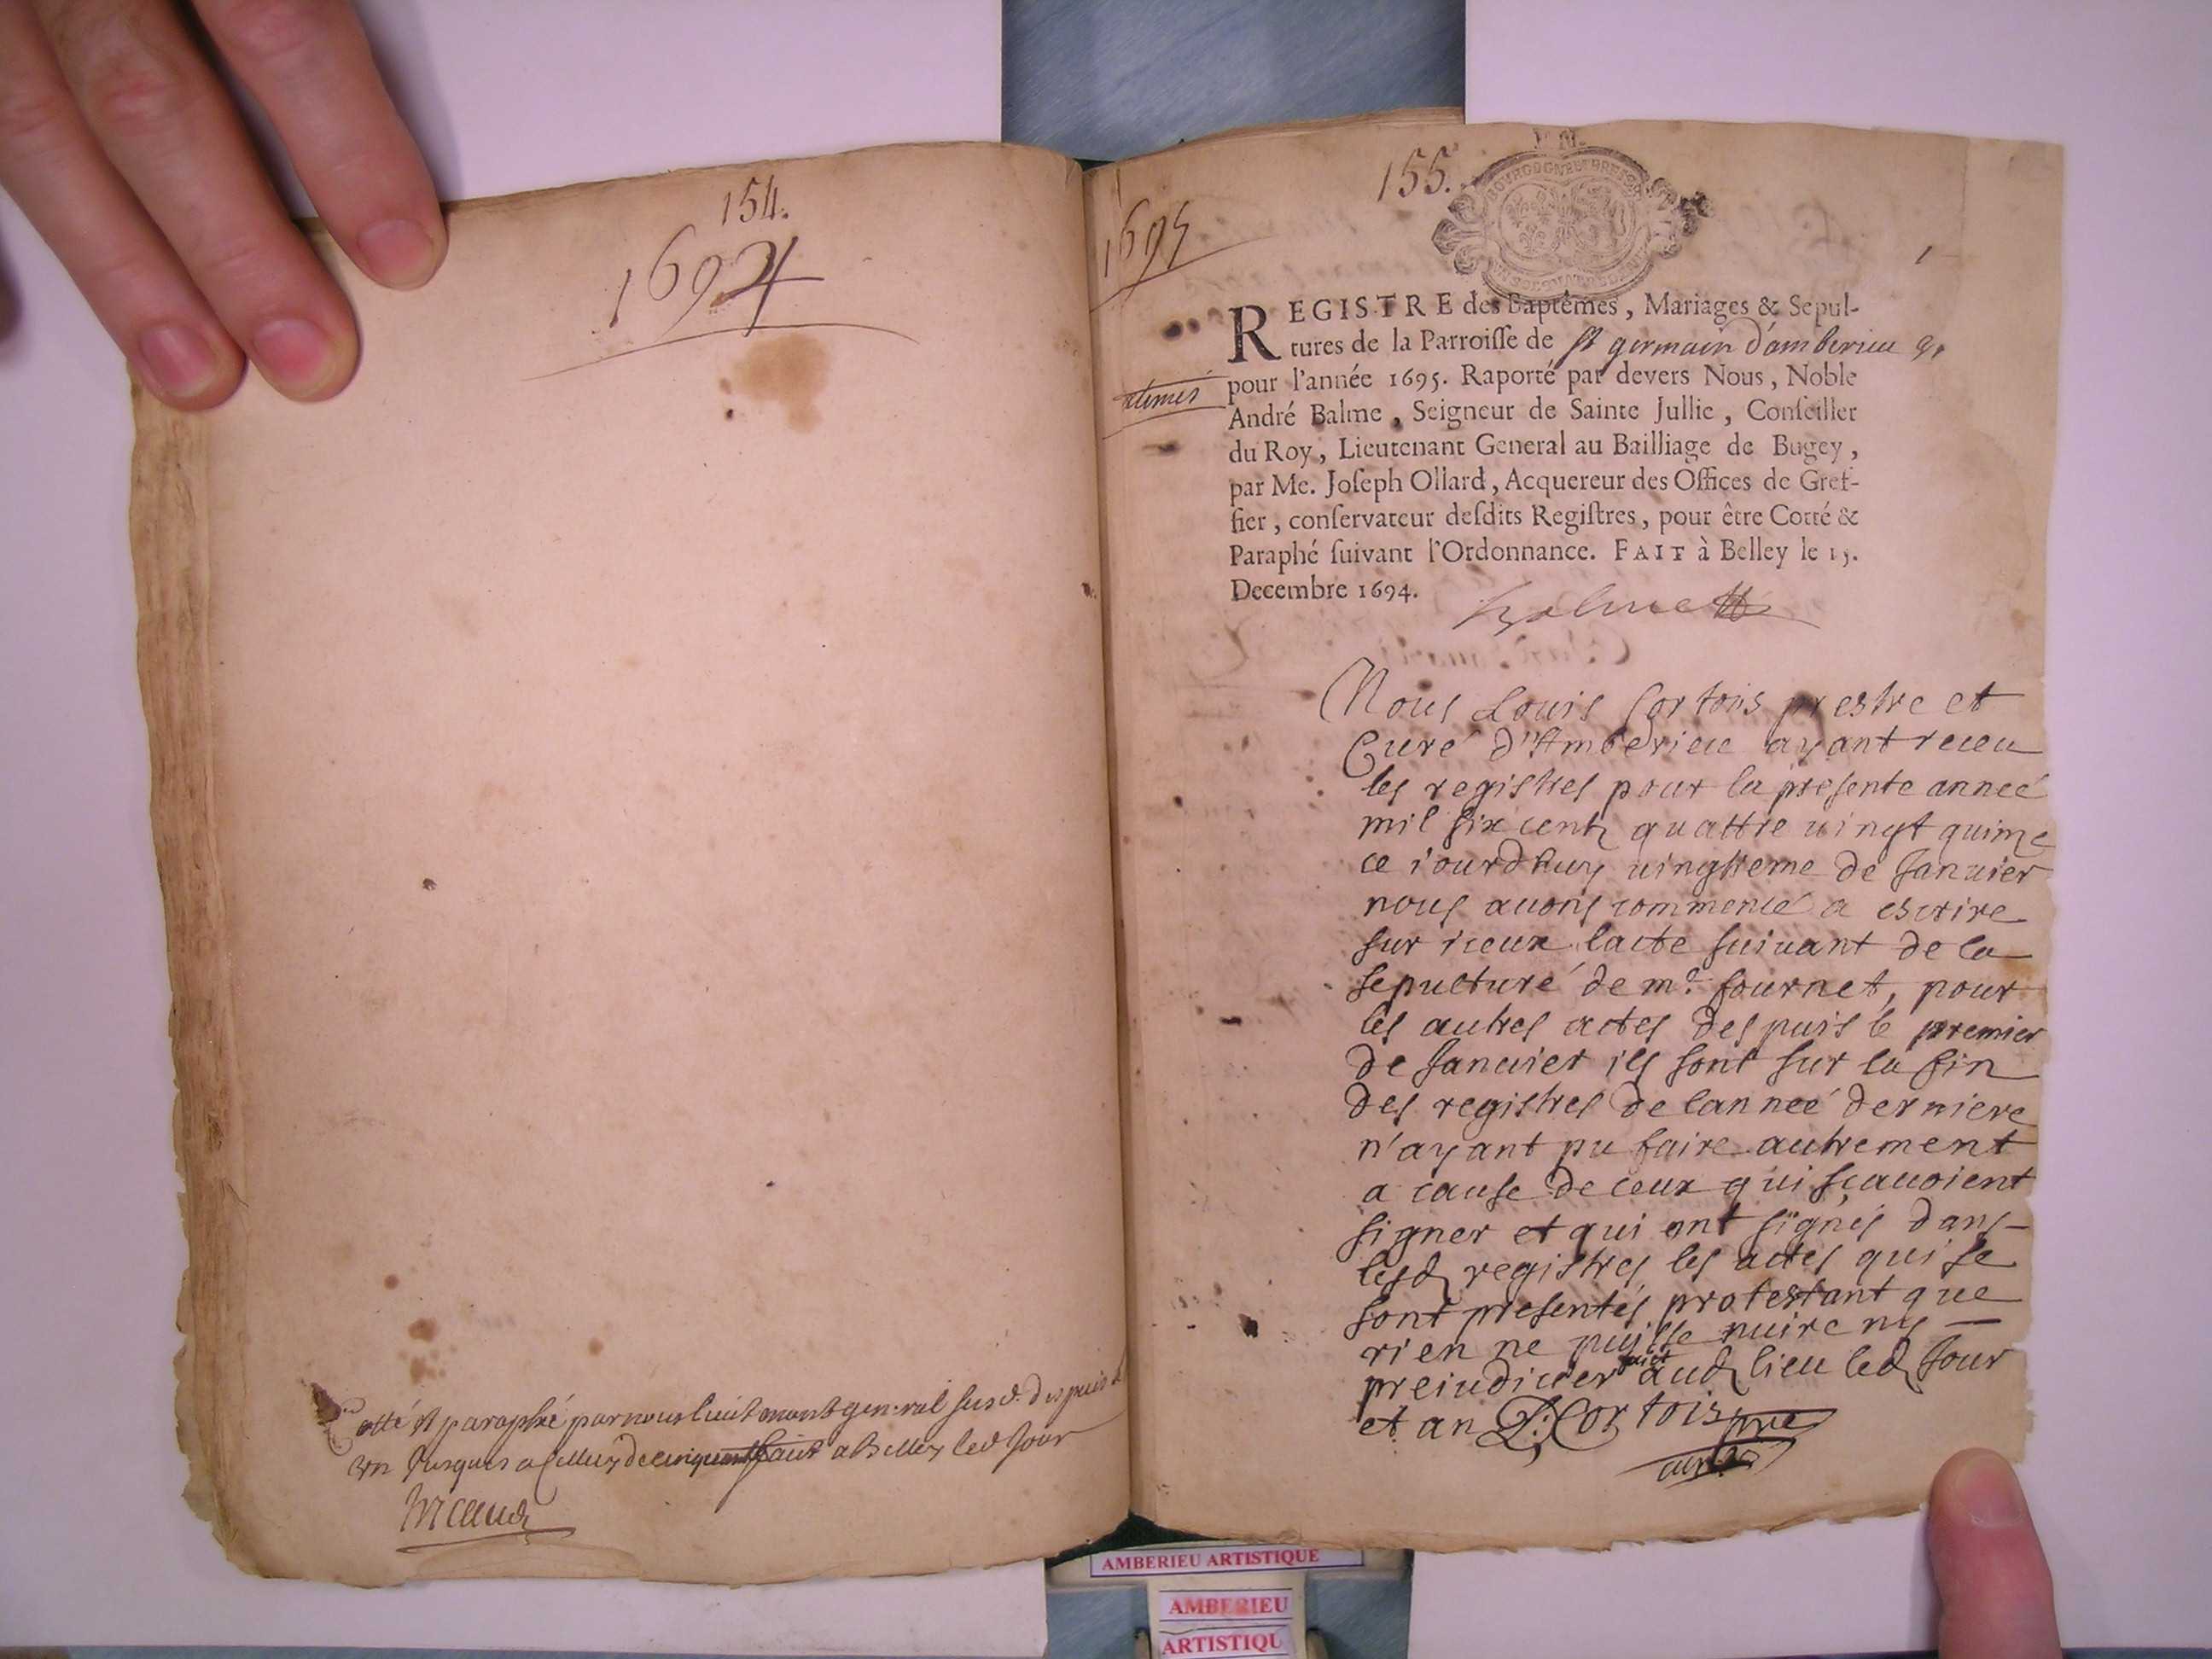 154.
1694
Cotté et paraphé par nous lieutenant general susd. despuis le
un Jusques a Celluy de cinquante fait a Belley led Jour
1695
155.
BOURGOGNE ET BRESSE
1
REGISTRE des Baptêmes, Mariages & Sepul-
tures de la Parroisse de St germain d'amberieu
pour l'année 1695. Raporté par devers Nous, Noble
André Balme, Seigneur de Sainte Jullie, Conseiller
du Roy, Lieutenant General au Bailliage de Bugey,
par Me. Joseph Ollard, Acquereur des Offices de Gref-
fier, conservateur desdits Registres, pour être Cotté &
Paraphé suivant l'Ordonnance. FAIT à Belley le 15.
Decembre 1694.
Balme
Nous Louis Cortois prestre et
Curé d'Amberieu ayant receu
les registres pour la presente anneé
mil six cents quattre uingt quinze
ce iourdhuy uingtieme de Januier
nous auons commencé a escrire
sur iceux lacte suiuant de la
sepulturé de mr. fournet, pour
les autres actes despuis le premier
de Januier ils sont sur la fin
des registres de lanneé derniere
n'ayant pu faire autrement
a cause de ceux qui sçauoient
signer et qui ont signés dans
lesd registres les actes qui se
sont presentés protestant que
rien ne puisse nuire ny
preiudicier fait aud lieu led Jour
et an L. Cortois pre
curé
AMBERIEU ARTISTIQUE
AMBERIEU
ARTISTIQU